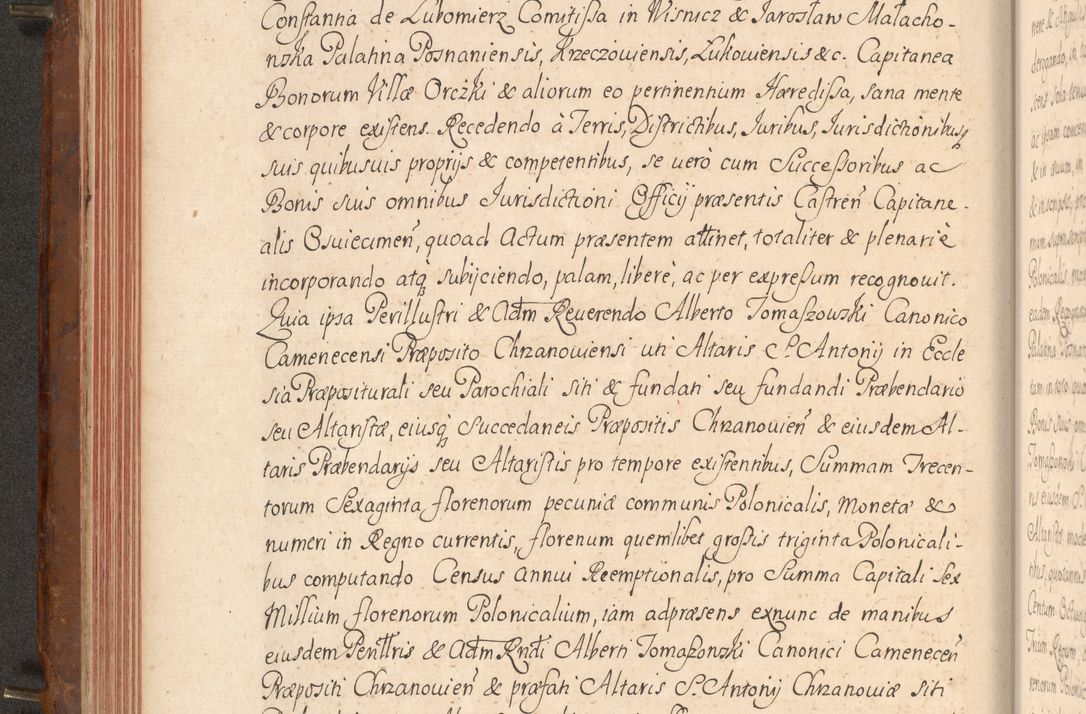 Constantia de Lubomierz Comitissa in Wisnicz & Jarosław Małacho-
wska Palatina Posnaniensis, Krzeczowiensis, Lukowiensis &c. Capitanea
Bonorum Villæ Orczki & aliorum eo pertinentium Hæredissa, sana mente
& corpore existens. Recedendo à Terris, Districtibus, Juribus, Jurisdictionibusq
suis quibusuis proprijs & competentibus, se verò cum Successoribus ac
Bonis suis omnibus Jurisdictioni Officij præsentis Castreñ Capitane-
alis Osuiecimeñ, quoad Actum præsentem attinet, totaliter & plenariè
incorporando atq subijciendo, palam, liberè, ac per expressum recognouit.
Quia ipsa Perillustri & Adm Reuerendo Alberto Tomaszowski Canonico
Camenecensi Præposito Chrzanouiensi uti Altaris S. Antonij in Eccle
sia Præpositurali seu Parochiali siti & fundati seu fundandi Præbendario
seu Altaristæ, eiusq Succedaneis Præpositis Chrzanouieñ & eiusdem Al-
taris Præbendarijs seu Altaristis pro tempore existentibus, Summam Trecen-
torum Sexaginta florenorum pecuniæ communis Polonicalis, Moneta &
numeri in Regno currentis, florenum quemlibet grossis triginta Polonicali-
bus computando Census Annui Reemptionalis, pro Summa Capitali Sex
Millium florenorum Polonicalium, iam adpræsens exnunc de manibus
eiusdem Perillris & Adm Rndi Alberti Tomaszowski Canonici Cameneceñ
Præpositi Chrzanouieñ & præfati Altaris S. Antonij Chrzanoviæ siti